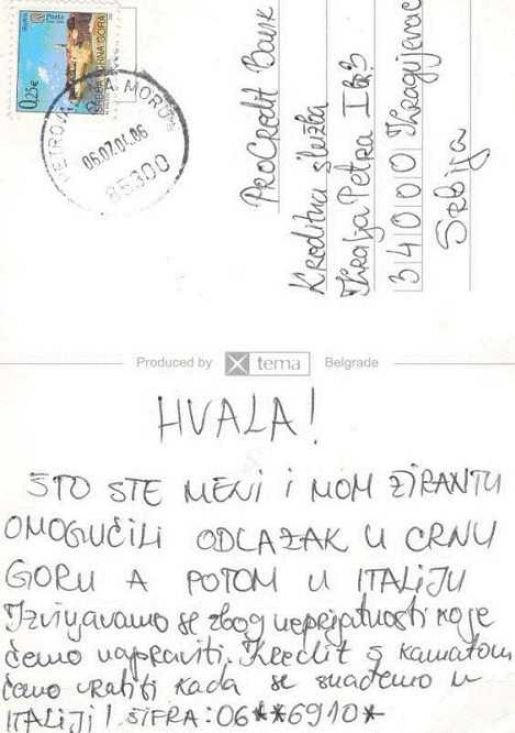 Pošta
0.25€
CRNA GORA
PETROVAC NA MORU
06.07.04.06
85300
ProCredit Bank
Kreditna služba
Kralja Petra I br3
34000 Kragujevac
Srbija
Produced by tema Belgrade
HVALA!
ŠTO STE MENI I MOM ŽIRANTU
OMOGUČILI ODLAZAK U CRNU
GORU A POTOM U ITALIJU
Izvinjavamo se zbog neprijatnosti koje
ćemo napraviti. Kredit s kamatom
ćemo vratiti kada se snađemo u
ITALIJI! ŠIFRA: 06**6910*